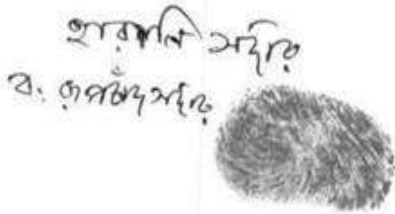 সর্দার
ব. রূপচাঁদ সর্দার